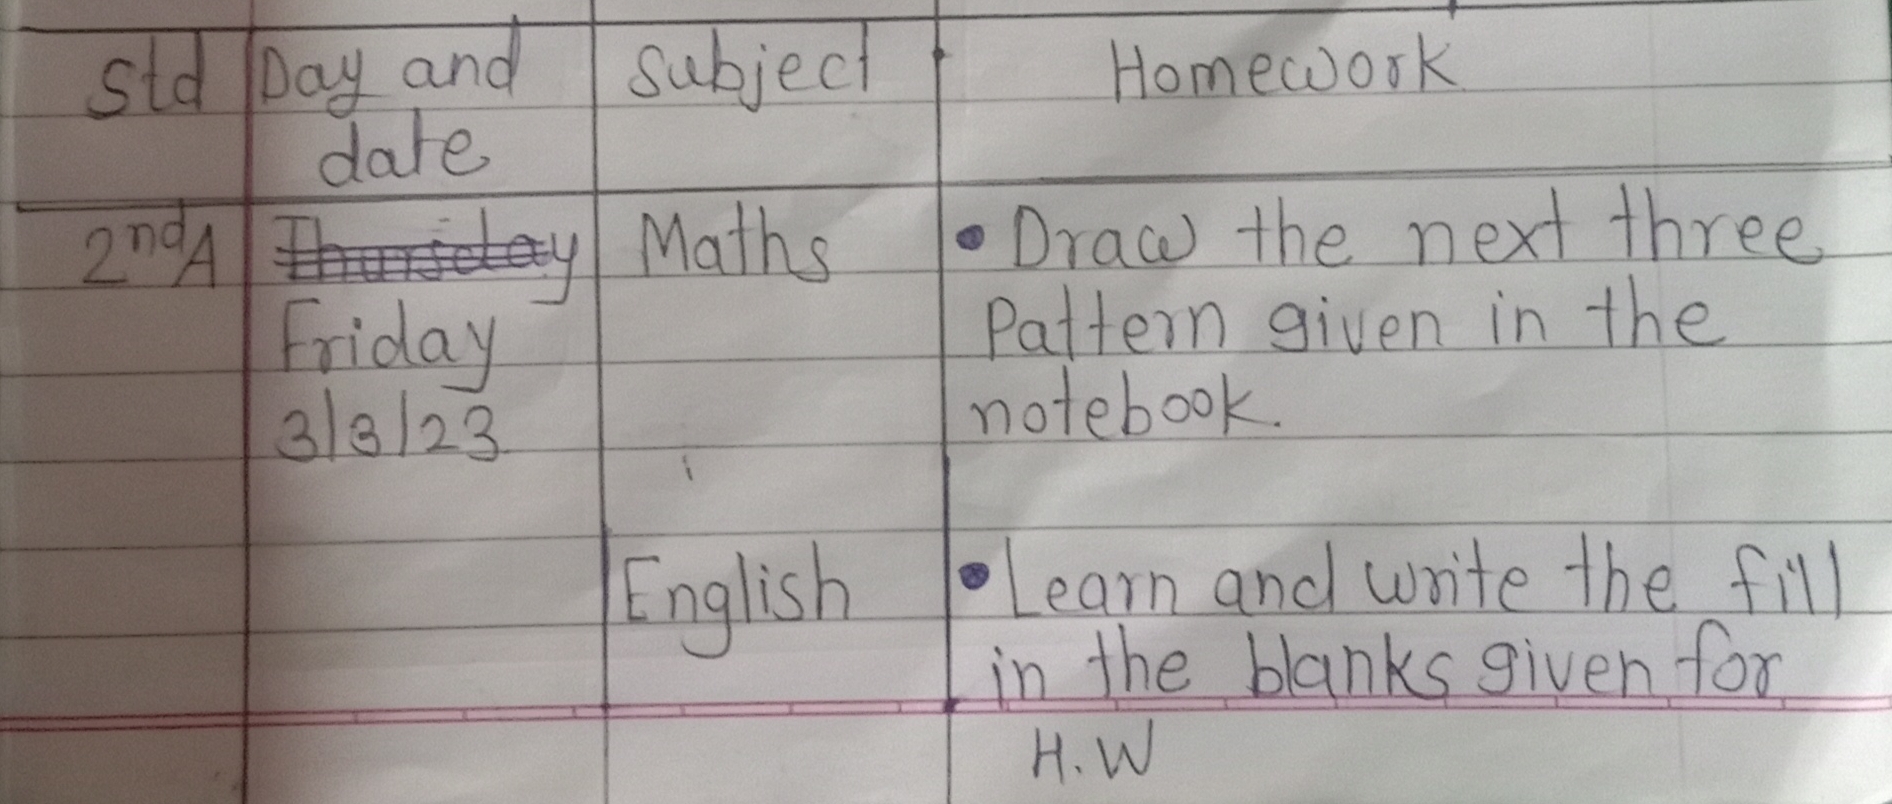 Std Day and Subject Homework
date
2nd A Thursday Maths • Draw the next three
Friday Pattern given in the
3/3/23 notebook.
English • Learn and write the fill
in the blanks given for
H.W